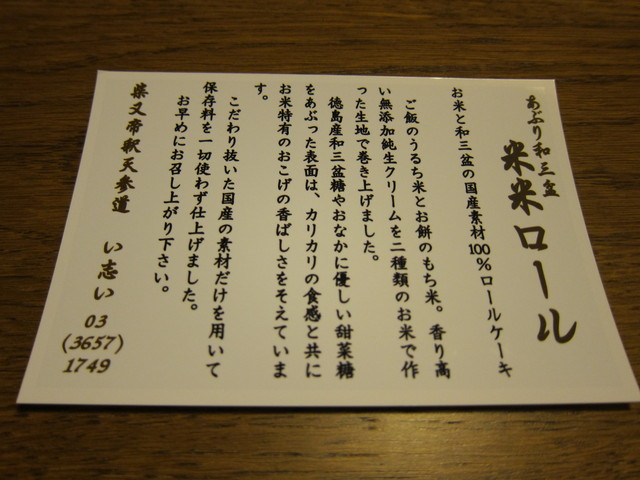 あぶり和三盆
米米ロール
お米と和三盆の国産素材100%ロールケーキ
ご飯のうるち米とお餅のもち米。香り高
い無添加純生クリームを二種類のお米で作
った生地で巻き上げました。
徳島産和三盆糖やおなかに優しい甜菜糖
をあぶった表面は、カリカリの食感と共に
お米特有のおこげの香ばしさをそえていま
す。
こだわり抜いた国産の素材だけを用いて
保存料を一切使わず仕上げました。
お早めにお召し上がり下さい。
柴又帝釈天参道 い志い
03
(3657)
1749